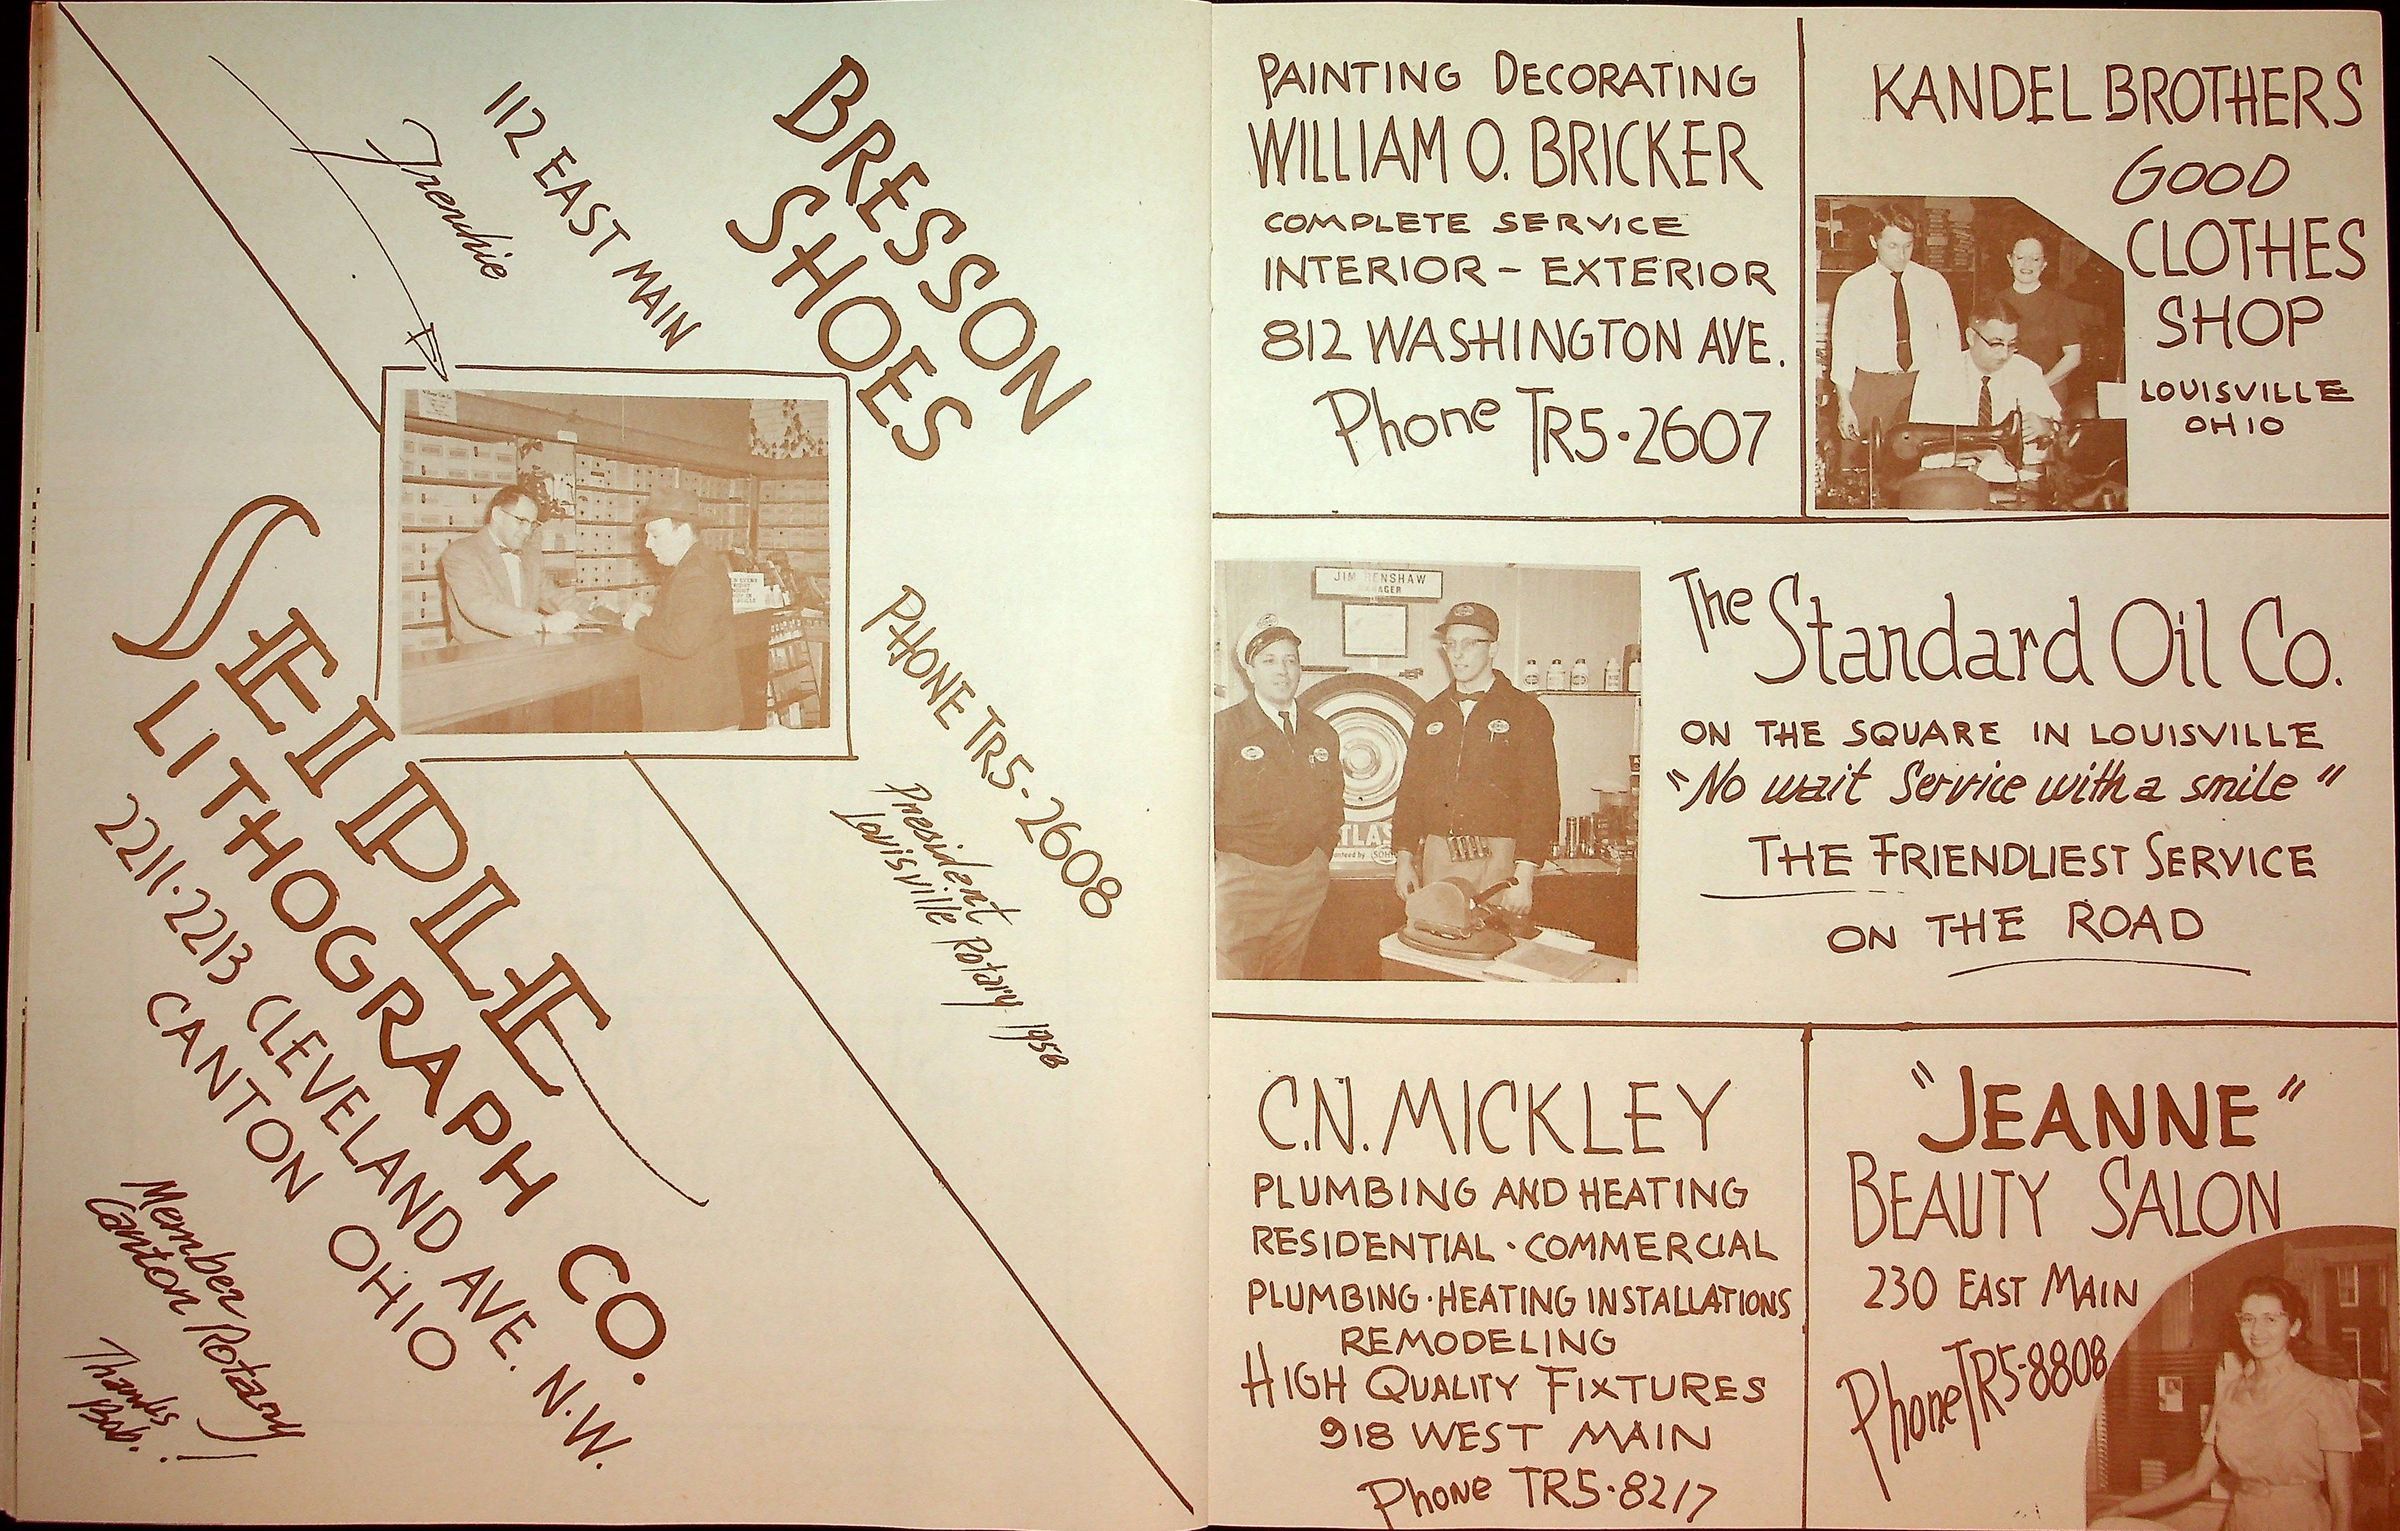 BRESSON
SHOES
112 EAST MAIN
Frenchie
PHONE TR5-2608
President
Louisville Rotary 1958
SEIPLE
LITHOGRAPH CO.
2211-2213 CLEVELAND AVE. N.W.
CANTON OHIO
Member
Canton Rotary!
Thanks
Bob.
PAINTING DECORATING
WILLIAM O. BRICKER
COMPLETE SERVICE
INTERIOR - EXTERIOR
812 WASHINGTON AVE.
Phone TR5-2607
KANDEL BROTHERS
GOOD
CLOTHES
SHOP
LOUISVILLE
OHIO
JIM RENSHAW
MANAGER
ATLAS
SOHIO
The Standard Oil Co.
ON THE SQUARE IN LOUISVILLE
"No wait Service with a smile"
THE FRIENDLIEST SERVICE
ON THE ROAD
C.N. MICKLEY
PLUMBING AND HEATING
RESIDENTIAL · COMMERCIAL
PLUMBING · HEATING INSTALLATIONS
REMODELING
HIGH QUALITY FIXTURES
918 WEST MAIN
Phone TR5-8217
"JEANNE"
BEAUTY SALON
230 EAST MAIN
Phone TR5-8808